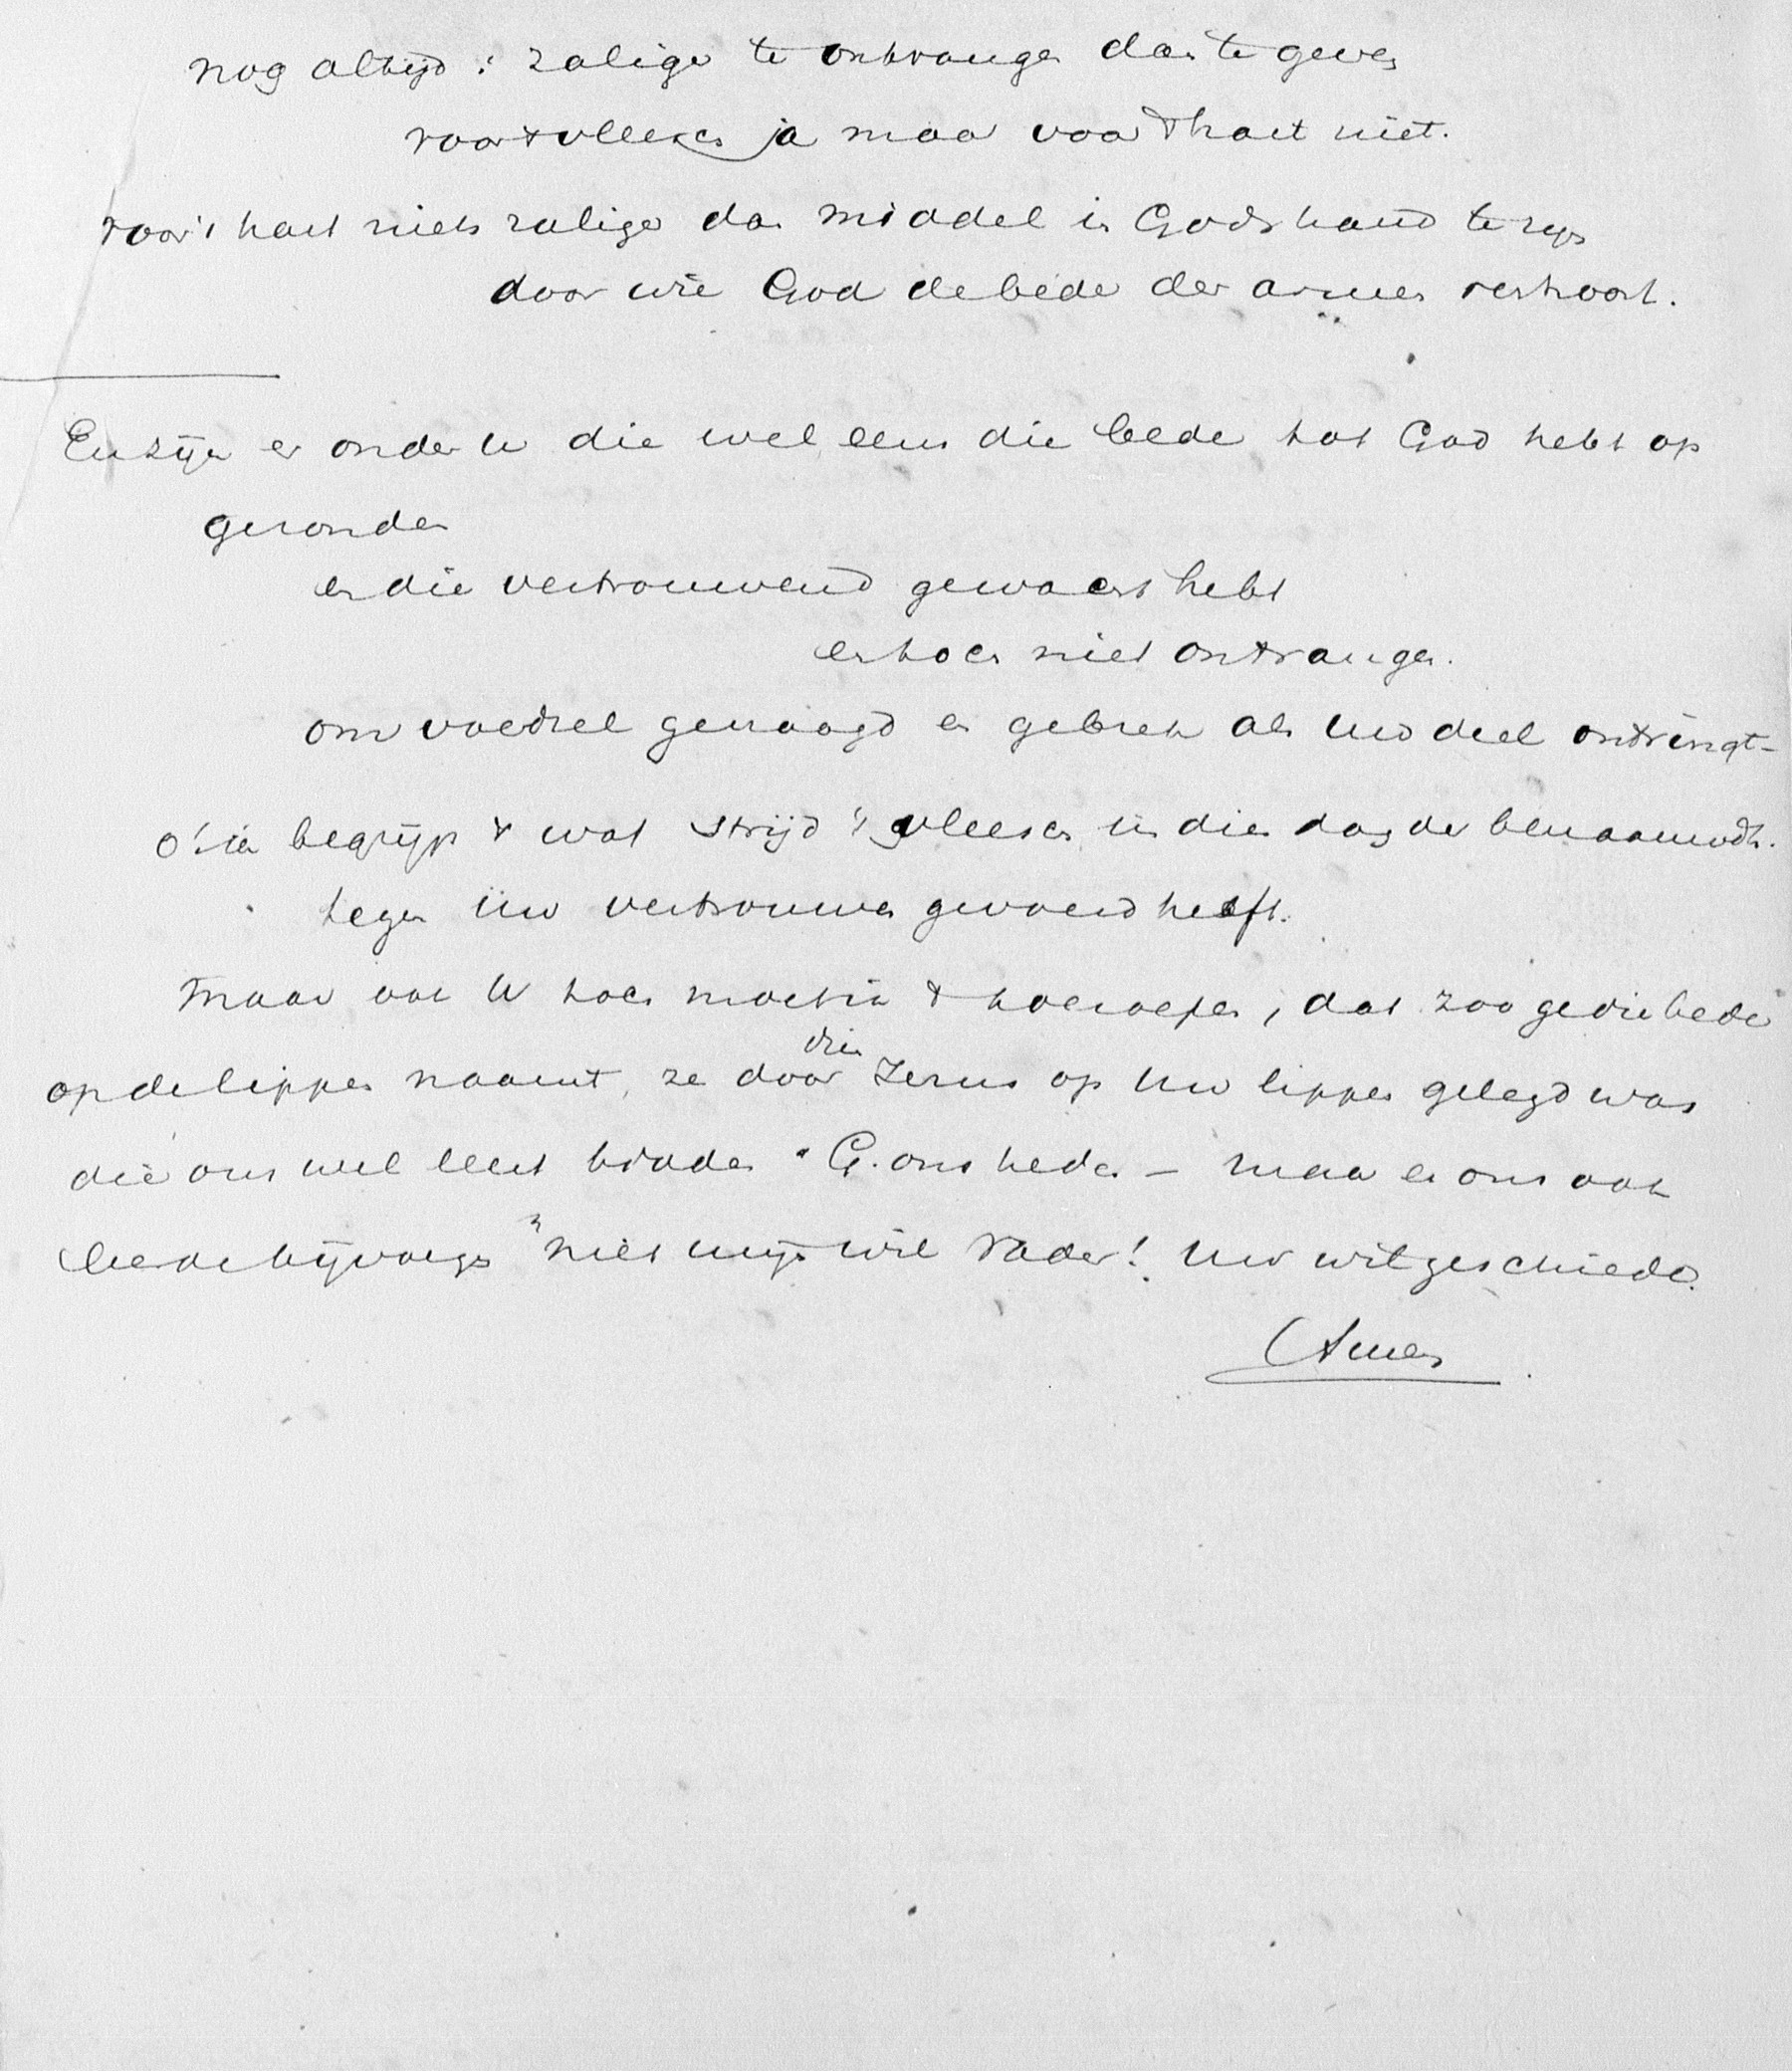 nog altijd : zaliger te ontvangen dan te geven
voor 't vleesch ja maar voor 't hart niet.
voor 't hart niets zaliger dan middel in Gods hand te zijn
door wie God de bede der armen verhoort.
En zijn er onder U die wel eens die bede tot God hebt op
gezonden
en die vertrouwend gewacht hebt
en toch niet ontvangen.
om voedsel gevraagd en gebrek als Uw deel ontvingt -
o! ik begrijp 't wat strijd 't vleesch in dien dag der benaauwdh.
tegen Uw vertrouwen gevoerd heeft.
Maar ook U toch moet ik 't toeroepen, dat zoo ge die bede
op de lippen naamt, ze door dien Jezus op Uw lippen gelegd was
die ons wel leert bidden " G. ons heden - maar er ons ook
leerde bijvoegen "niet mijn wil Vader! Uw wil geschiede.
Amen